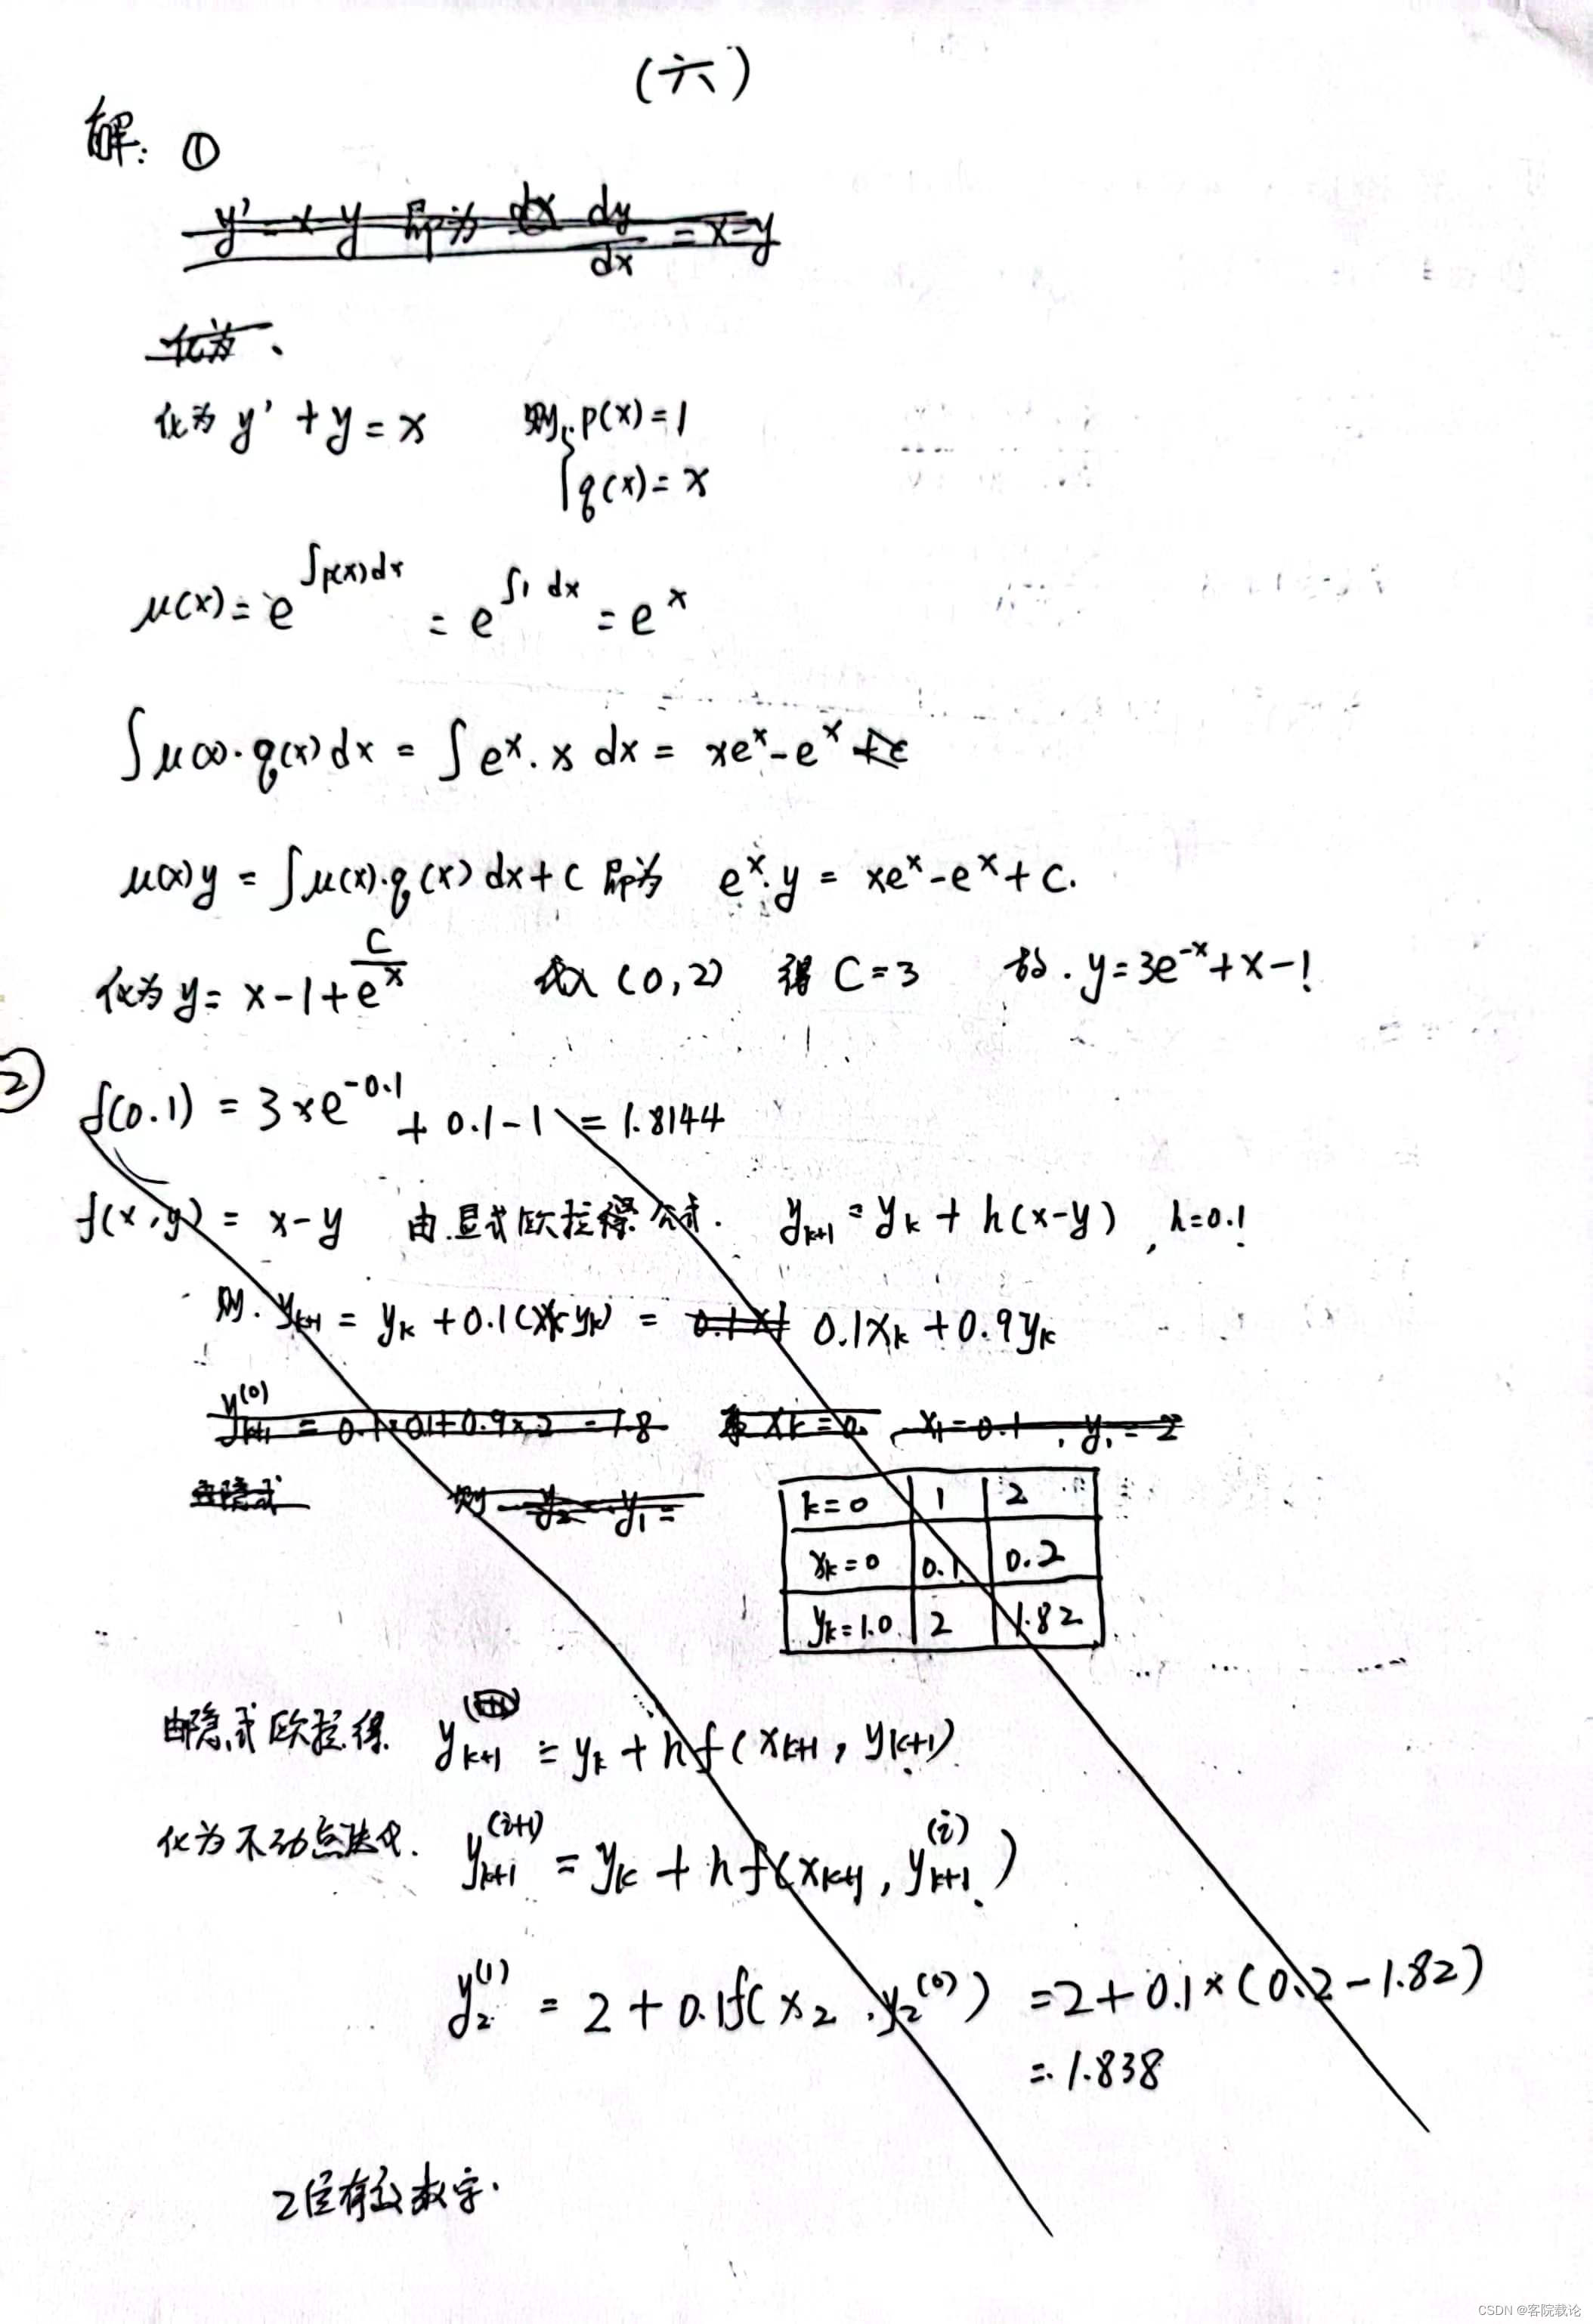 (六)
解: ①
y' = x-y 即为 dx dy/dx = x-y
化为、
化为 y' + y = x 则 { p(x) = 1
q(x) = x
μ(x) = e^{∫p(x)dx} = e^{∫1 dx} = e^x
∫μ(x)·q(x)dx = ∫e^x·x dx = xe^x - e^x + c
μ(x)y = ∫μ(x)·q(x)dx + C 即为 e^x·y = xe^x - e^x + C.
化为 y = x-1+C/e^x 代入 (0,2) 得 C=3 故. y=3e^{-x}+x-1
② f(0.1) = 3×e^{-0.1} + 0.1-1 = 1.8144
f(x,y) = x-y 由显式欧拉得公式. y_{k+1} = y_k + h(x-y), h=0.1
则. y_{k+1} = y_k + 0.1(x_k-y_k) = 0.1x_k + 0.9y_k
y_{k+1}^{(0)} = 0.1×0.1+0.9×2 = 1.8 x_k = 0. x_1=0.1, y_1=2
由隐式 则 y_2 y_1 =
k=0 1 2
x_k=0 0.1 0.2
y_k=1.0 2 1.82
由隐式欧拉得 y_{k+1} = y_k + hf(x_{k+1}, y_{k+1})
化为不动点迭代. y_{k+1}^{(i+1)} = y_k + hf(x_{k+1}, y_{k+1}^{(i)})
y_2^{(1)} = 2+0.1f(x_2, y_2^{(0)}) = 2+0.1×(0.2-1.82)
= 1.838
2位有效数字.
CSDN @客院载论